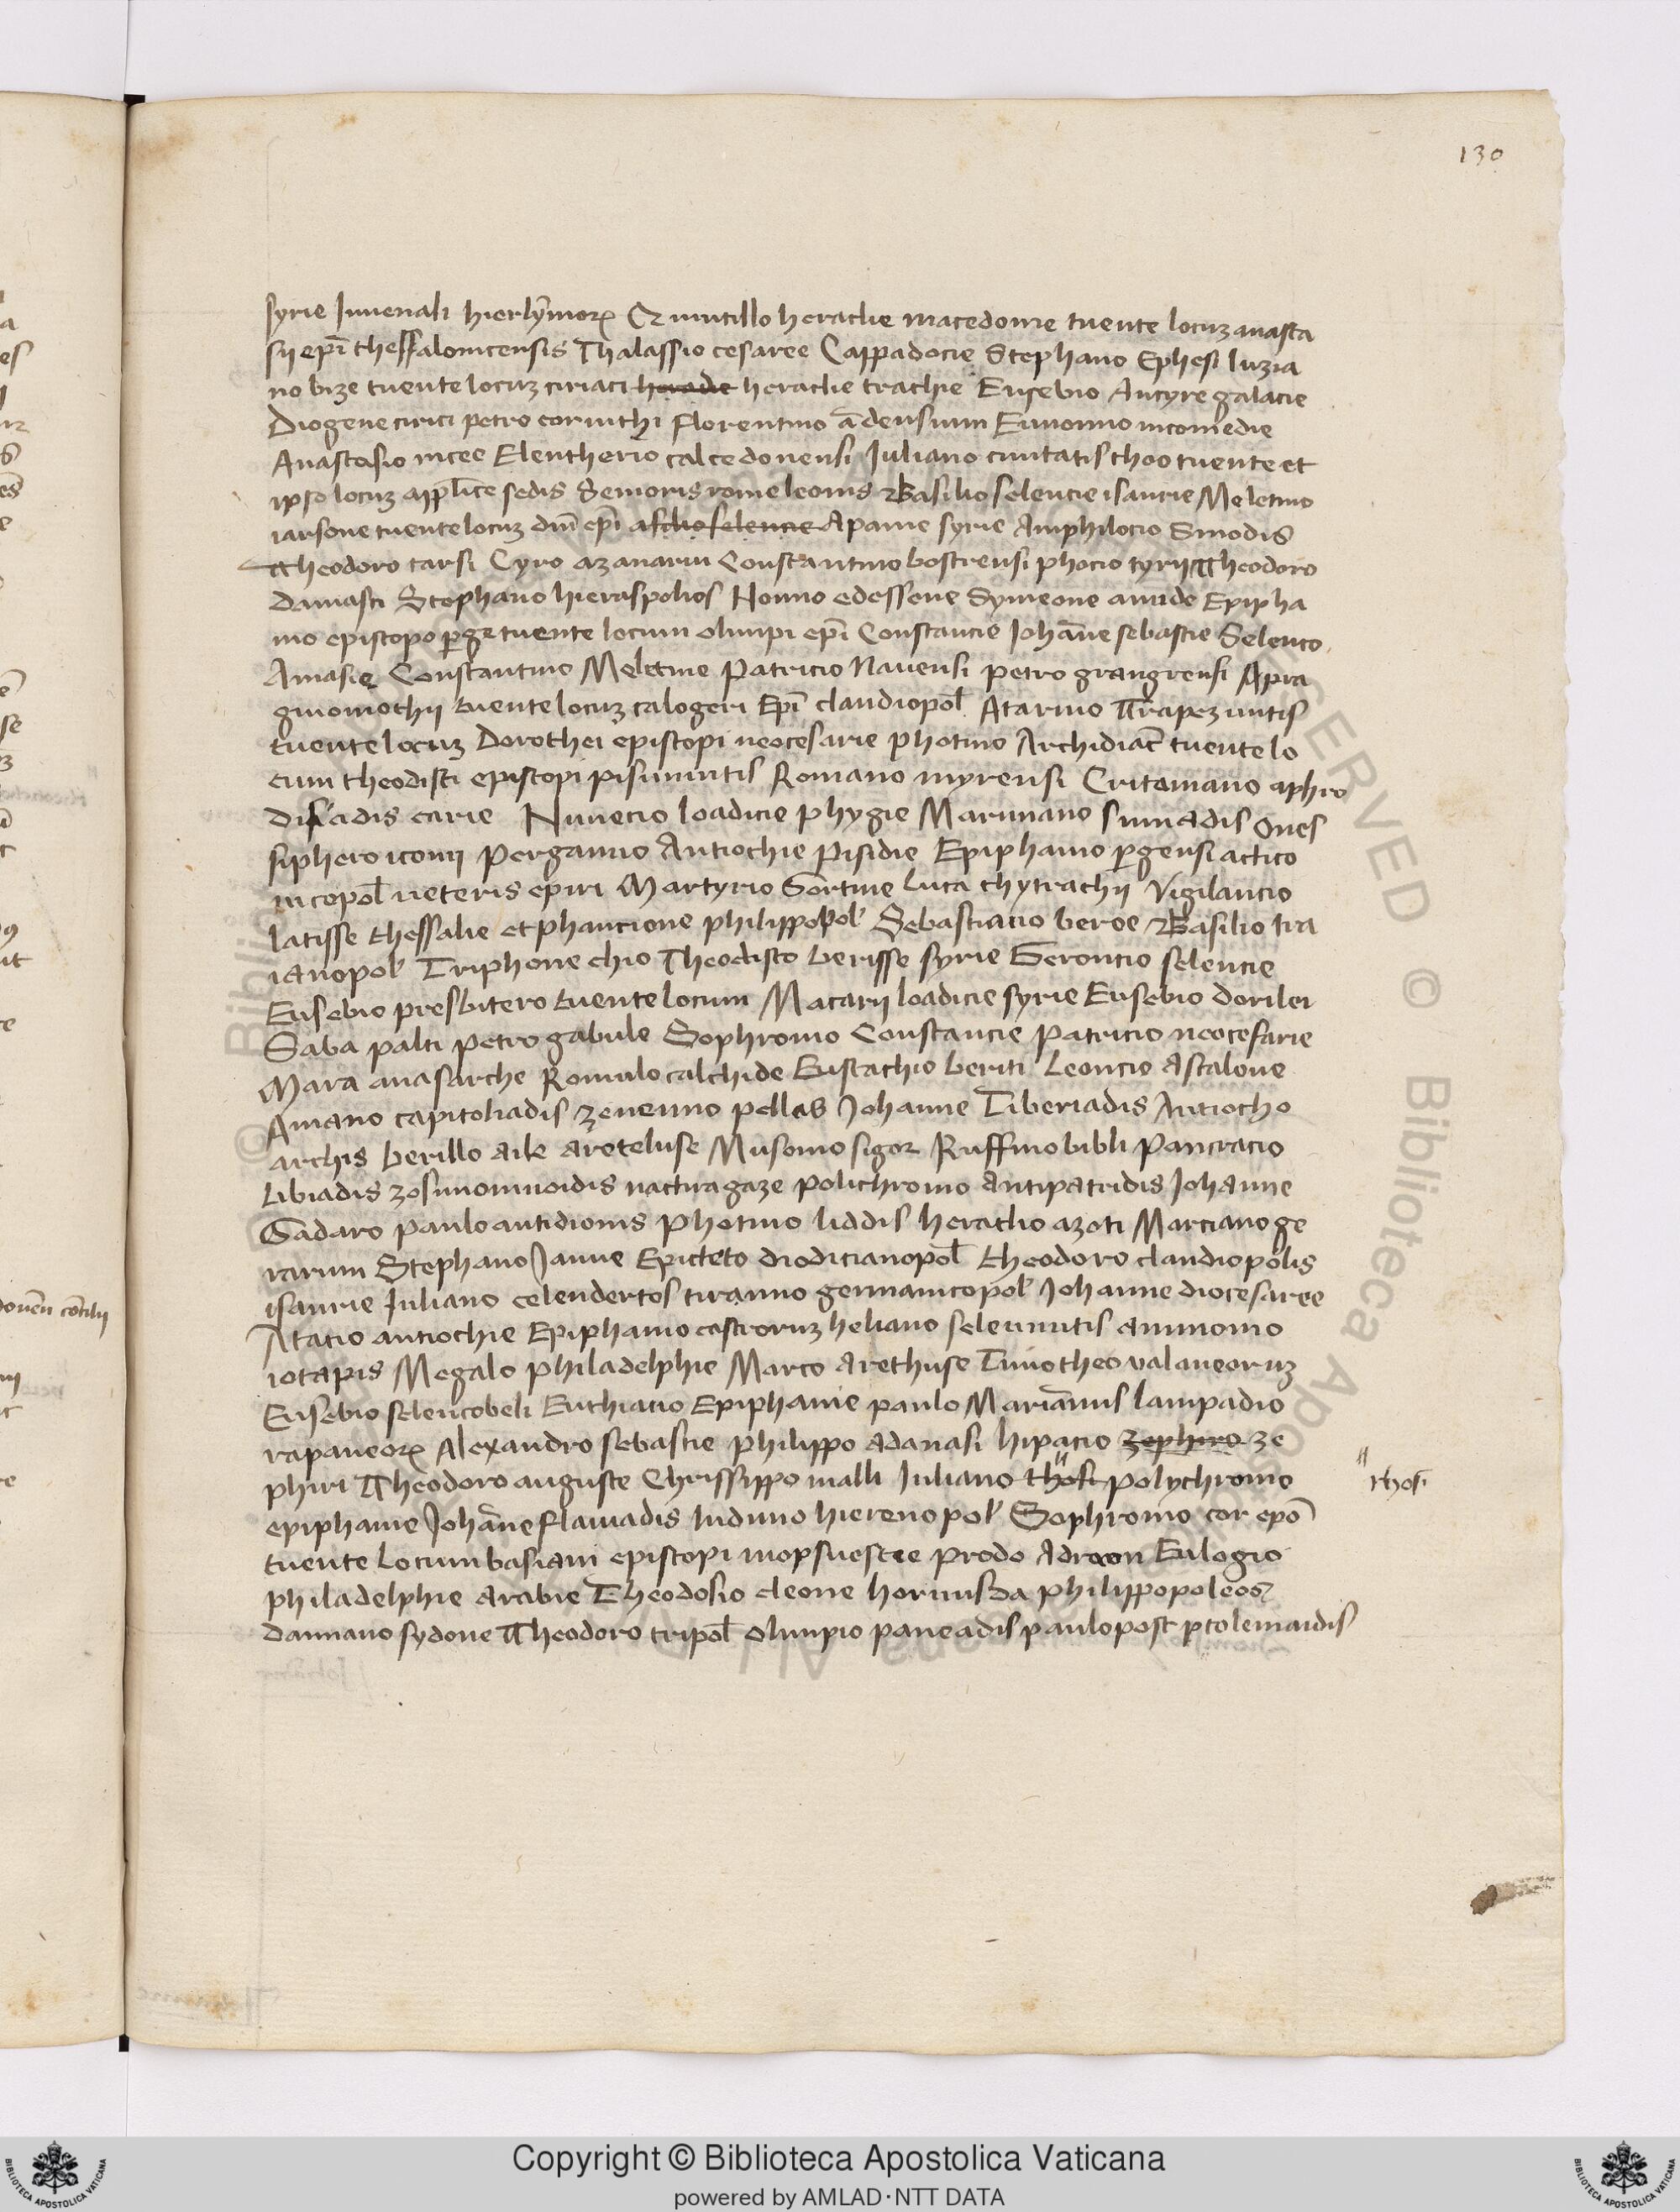 130
syrie Iuvenali hierlỹmoꝝ Quintillo heraclie macedonie tuente locuꝫ anasta
sii ep̄i thessalonicensis Thalassio cesaree Cappadocie Stephano Ephesi luzia
no bize tuente locuꝫ ciriaci heracle heraclie trachie Eusebio Ancyre galacie
Diogene cirici petro corinthi florentino ādensium Eunomio nicomedie
Anastasio nicee Eleutherio calcedonensi Iuliano ciuitatis choo tuente et
ipso locuꝫ ap̄plice sedis Senioris rome leonis Basilio seleucie isaurie Meletino
iarsone tuente locuꝫ dñi ep̄i asclio seleucie Apanie syrie Amphilocio Sinodis
Theodoro tarsi Cyro azanarin Constantino bostrensi phocio tyrii Theodoro
damasci Stephano hieraspolios Nonno edessene Symeone amide Epipha
nio episcopo ꝑge tuente locum olimpi ep̄i Constancie Joħane sebastie Seleuco
Amasie Constantino Meletine Patricio Navensi petro grangrensi Apra
gmonothii tuente locuꝫ calogeri Ep̄i claudiopol̄ Atarino Trapezuntis
tuente locuꝫ Dorothei episcopi neocesarie photino Archidiac̄ tuente lo
cum theodisti episcopi pisinuntis Romano myrensi Critomano aphro
disiadis carie Nunecio loadicie phygie Marinane sinnadis Ones
siphero iconii Pergamio Antiochie Pisidie Epiphanio ꝑgensi actico
nicopol̄ veteris epiri Martyrio Gortine Luca thytrachii Vigilancio
latisse thessalie et phancione philippopol̄ Sebastiano beroe Basilio tra
ianopol̄ Triphone chio Theodisto berisse syrie Geroncio seleucie
Eusebio presbitero tuente locum Macarii loadicie syrie Eusebio dorilei
Saba palti petro gabule Sophronio Constancie Patricio neocesarie
Mara anasarche Romulo calchide Eustachio beriti Leoncio Ascalone
Aniano capitoliadis zenenno pellas Johanne Tiberiadis Antiocho
archis berillo aile areteluse Musonio sigor Ruffino bibli Pancracio
Libiadis zosimo minoidis nactira gaze polichronio Antipatridis Johanne
Gadaro paulo antidionis Photino liddis heraclio azoti Marciano ge
rarum Stephano Janne Epicteto diodicianopol̄ theodoro claudiopolis
isaurie Iuliano celendertos tiranno germanicopol̄ Johanne diocesaree
Atacio antiochie Epiphanio castroruꝫ heliano seleunutis ammonio
iotapis Megalo philadelphie Marco Arethuse Timotheo valaneoruꝫ
Eusebio seleucobeli Euthiacio Epiphanie paulo Mariānis lampadio
rapaneoꝝ Alexandro sebastie philippo adanasi hipacio zephiro ze
phiri Theodoro auguste Chrissippo malli Iuliano thosi polychronio
rhosi
epiphanie Joħane flaviadis Induno hierenopol̄ Sophronio cor epō
tuente locum basiani episcopi mopsuestie prodo Adroon Eulogio
philadelphie arabie Theodosio cleone hormisda philippopoleos
damiano sydone Theodoro tripol̄ olimpio paneadis paulo post ptolemaidis
Copyright © Biblioteca Apostolica Vaticana
powered by AMLAD·NTT DATA